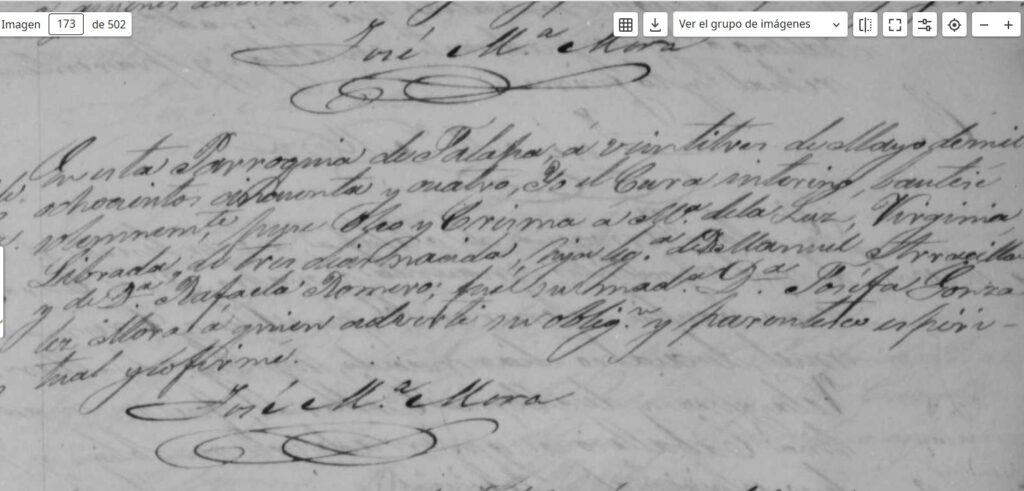 Imagen 173 de 502 Ver el grupo de imágenes
José M.ª Mora
En esta Parroquia de Jalapa, á veintitres de Mayo de mil
ochocientos cincuenta y cuatro, Yo el Cura interino, bautisé
solemnem.te puse Oleo y Crisma á M.ª de la Luz, Virginia
Librada, de tres dias nacida, hija leg.ª de D. Manuel
y de D.ª Rafaela Romero; fué su mad.ª D.ª Josefa Gonza
lez Mora á quien advertí su oblig.n y parentesco espiri-
tual y lo firmé.
José M.ª Mora